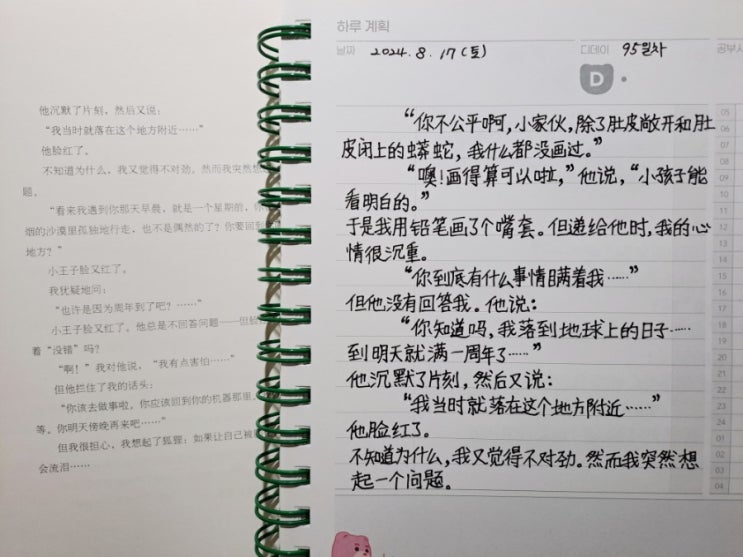 他沉默了片刻，然后又说：
“我当时就落在这个地方附近……”
他脸红了。
不知道为什么，我又觉得不对劲。然而我突然想
题。
“看来我遇到你那天早晨，就是一个星期前，你
烟的沙漠里孤独地行走，也不是偶然的了？你要回到
地方？”
小王子脸又红了。
我犹疑地问：
“也许是因为周年到了吧？……”
小王子脸又红了。他总是不回答问题——但
着“没错”吗？
“啊！”我对他说，“我有点害怕……”
但他拦住了我的话头：
“你该去做事啦。你应该回到你的机器那里。
等。你明天傍晚再来吧……”
但我很担心。我想起了狐狸：如果让自己被
会流泪……
하루 계획
날짜 2024. 8. 17 (토) 디데이 95일차 공부시
D
“你不公平啊，小家伙，除了肚皮敞开和肚
皮闭上的蟒蛇，我什么都没画过。”
“噢！画得算可以啦，”他说，“小孩子能
看明白的。”
于是我用铅笔画了个嘴套。但递给他时，我的心
情很沉重。
“你到底有什么事情瞒着我……”
但他没有回答我。他说：
“你知道吗，我落到地球上的日子……
到明天就满一周年了……”
他沉默了片刻，然后又说：
“我当时就落在这个地方附近……”
他脸红了。
不知道为什么，我又觉得不对劲。然而我突然想
起一个问题。
05
06
07
08
09
10
11
12
1
14
15
16
17
18
19
20
21
22
23
24
01
02
03
04